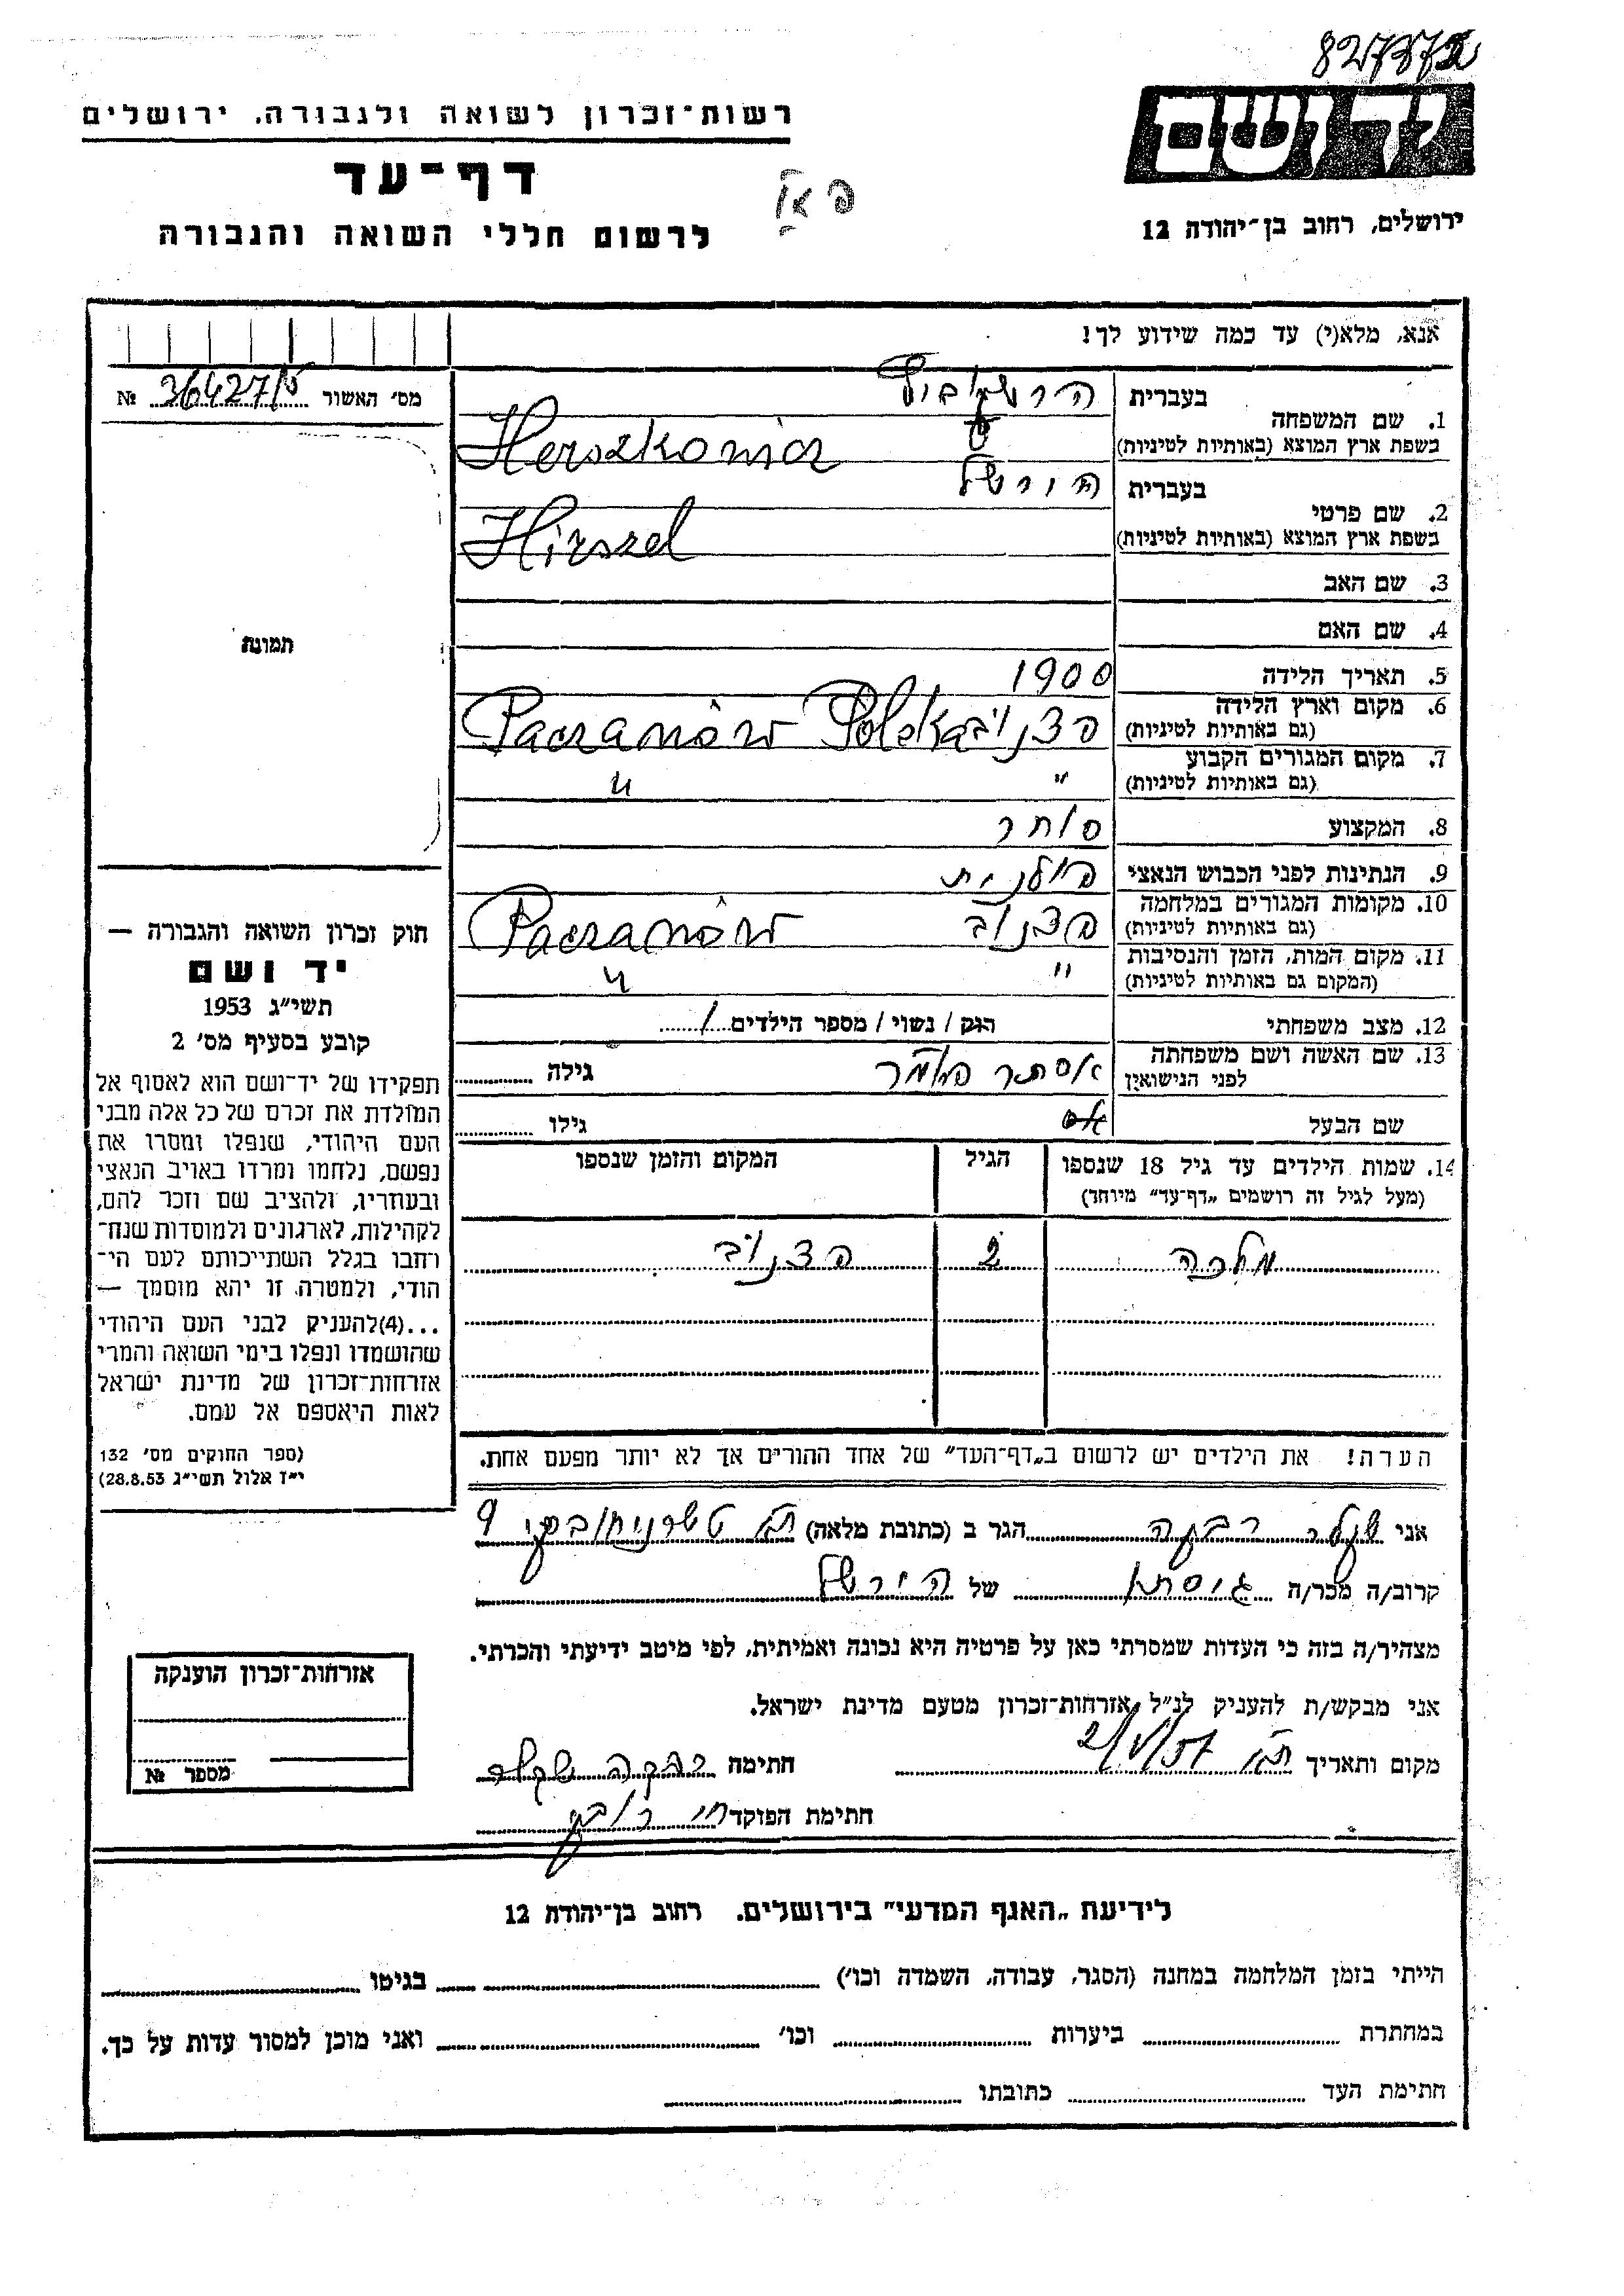 827372
יד ושם
ירושלים, רחוב בן־יהודה 12
רשות־זכרון לשואה ולגבורה, ירושלים
דף־עד
לרשום חללי השואה והגבורה
אנא, מלא(י) עד כמה שידוע לך!
מס׳ האשור № 36427/5
תמונה
בעברית
1. שם המשפחה
בשפת ארץ המוצא (באותיות לטיניות) Herszkowicz
בעברית הירשל
2. שם פרטי
בשפת ארץ המוצא (באותיות לטיניות) Hirszel
3. שם האב
4. שם האם
5. תאריך הלידה 1900
6. מקום וארץ הלידה פצנוב Pacranów Polska
(גם באותיות לטיניות)
7. מקום המגורים הקבוע " "
(גם באותיות לטיניות)
8. המקצוע סוחר
9. הנתינות לפני הכבוש הנאצי פולנית
10. מקומות המגורים במלחמה פצנוב Pacranów
(גם באותיות לטיניות)
11. מקום המות, הזמן והנסיבות " "
(המקום גם באותיות לטיניות)
12. מצב משפחתי רוק / נשוי / מספר הילדים 1
13. שם האשה ושם משפחתה אסתר גילה
לפני הנישואין
שם הבעל גילו
14. שמות הילדים עד גיל 18 שנספו הגיל המקום והזמן שנספו
(מעל לגיל זה רושמים „דף־עד״ מיוחד)
מלכה 2 פצנוב
הערה! את הילדים יש לרשום ב„דף־העד״ של אחד ההורים אך לא יותר מפעם אחת.
חוק זכרון השואה והגבורה —
יד ושם
תשי״ג 1953
קובע בסעיף מס׳ 2
תפקידו של יד־ושם הוא לאסוף אל
המולדת את זכרם של כל אלה מבני
העם היהודי, שנפלו ומסרו את
נפשם, נלחמו ומרדו באויב הנאצי
ובעוזריו, ולהציב שם וזכר להם,
לקהילות, לארגונים ולמוסדות שנח־
רחבו בגלל השתייכותם לעם הי־
הודי, ולמטרה זו יהא מוסמך —
...(4)להעניק לבני העם היהודי
שהושמדו ונפלו בימי השואה והמרי
אזרחות־זכרון של מדינת ישראל
לאות היאספם אל עמם.
(ספר החוקים מס׳ 132
י״ז אלול תשי״ג 28.8.53)
אני רבקה הגר ב (כתובת מלאה) ת״א טשרניחובסקי 9
קרוב/ה מכר/ה גיסתו של הירשל
מצהיר/ה בזה כי העדות שמסרתי כאן על פרטיה היא נכונה ואמיתית, לפי מיטב ידיעתי והכרתי.
אני מבקש/ת להעניק לנ״ל אזרחות־זכרון מטעם מדינת ישראל.
מקום ותאריך ת״א 2/V/57 חתימה רבקה
חתימת הפוקד
אזרחות־זכרון הוענקה
מספר №
לידיעת „האגף המדעי״ בירושלים. רחוב בן־יהודה 12
הייתי בזמן המלחמה במחנה (הסגר, עבודה, השמדה וכו׳) בגיטו
במחתרת ביערות וכו׳ ואני מוכן למסור עדות על כך.
חתימת העד כתובתו